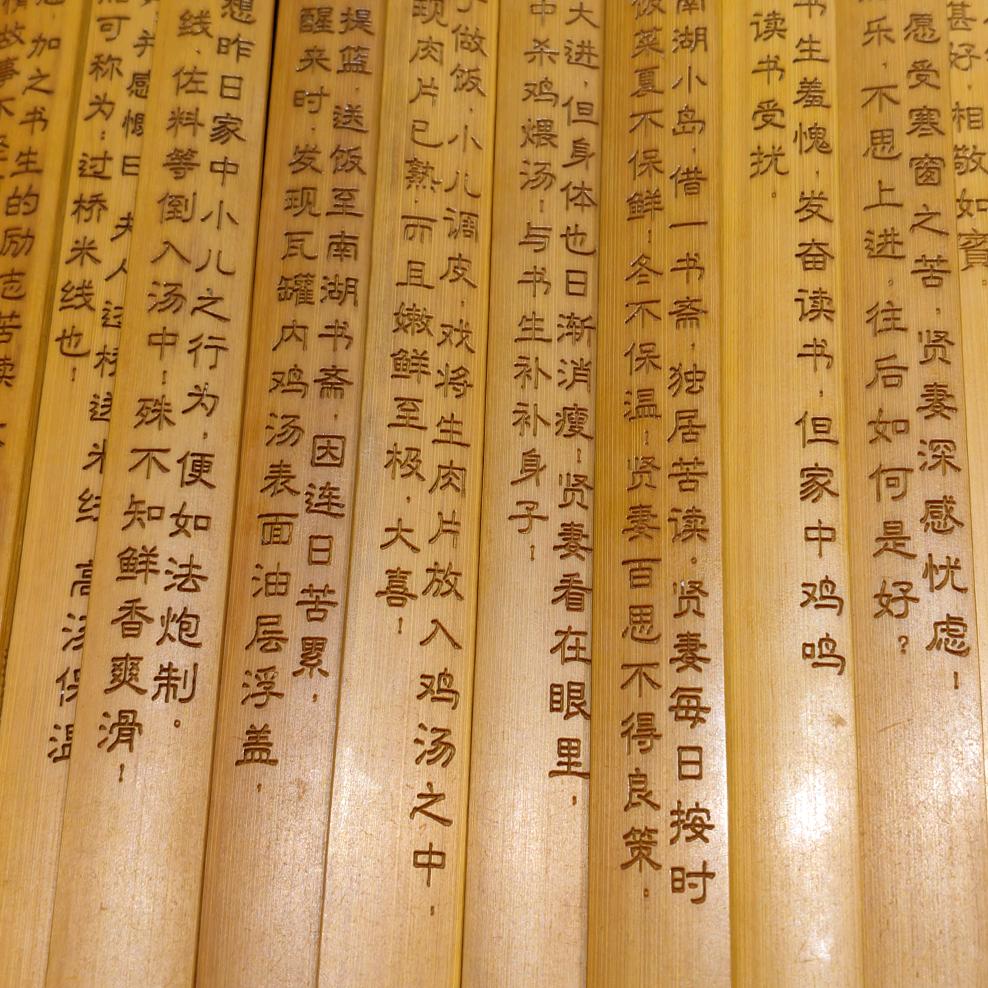 甚好,相敬如宾。
愿受寒窗之苦,贤妻深感忧虑!
乐,不思上进,往后如何是好?
书生羞愧,发奋读书,但家中鸡鸣
读书受扰。
南湖小岛,借一书斋,独居苦读。贤妻每日按时
饭菜夏不保鲜!冬不保温!贤妻百思不得良策。
大进,但身体也日渐消瘦!贤妻看在眼里,
中杀鸡煨汤!与书生补补身子!
做饭,小儿调皮,戏将生肉片放入鸡汤之中,
现肉片已熟,而且嫩鲜至极,大喜!
提篮,送饭至南湖书斋,因连日苦累,
醒来时,发现瓦罐内鸡汤表面油层浮盖,
想昨日家中小儿之行为,便如法炮制。
线、佐料等倒入汤中!殊不知鲜香爽滑!
并感慨曰 夫人过桥送米线 高汤保温
可称为:过桥米线也!
加之书生的励志苦读
故事